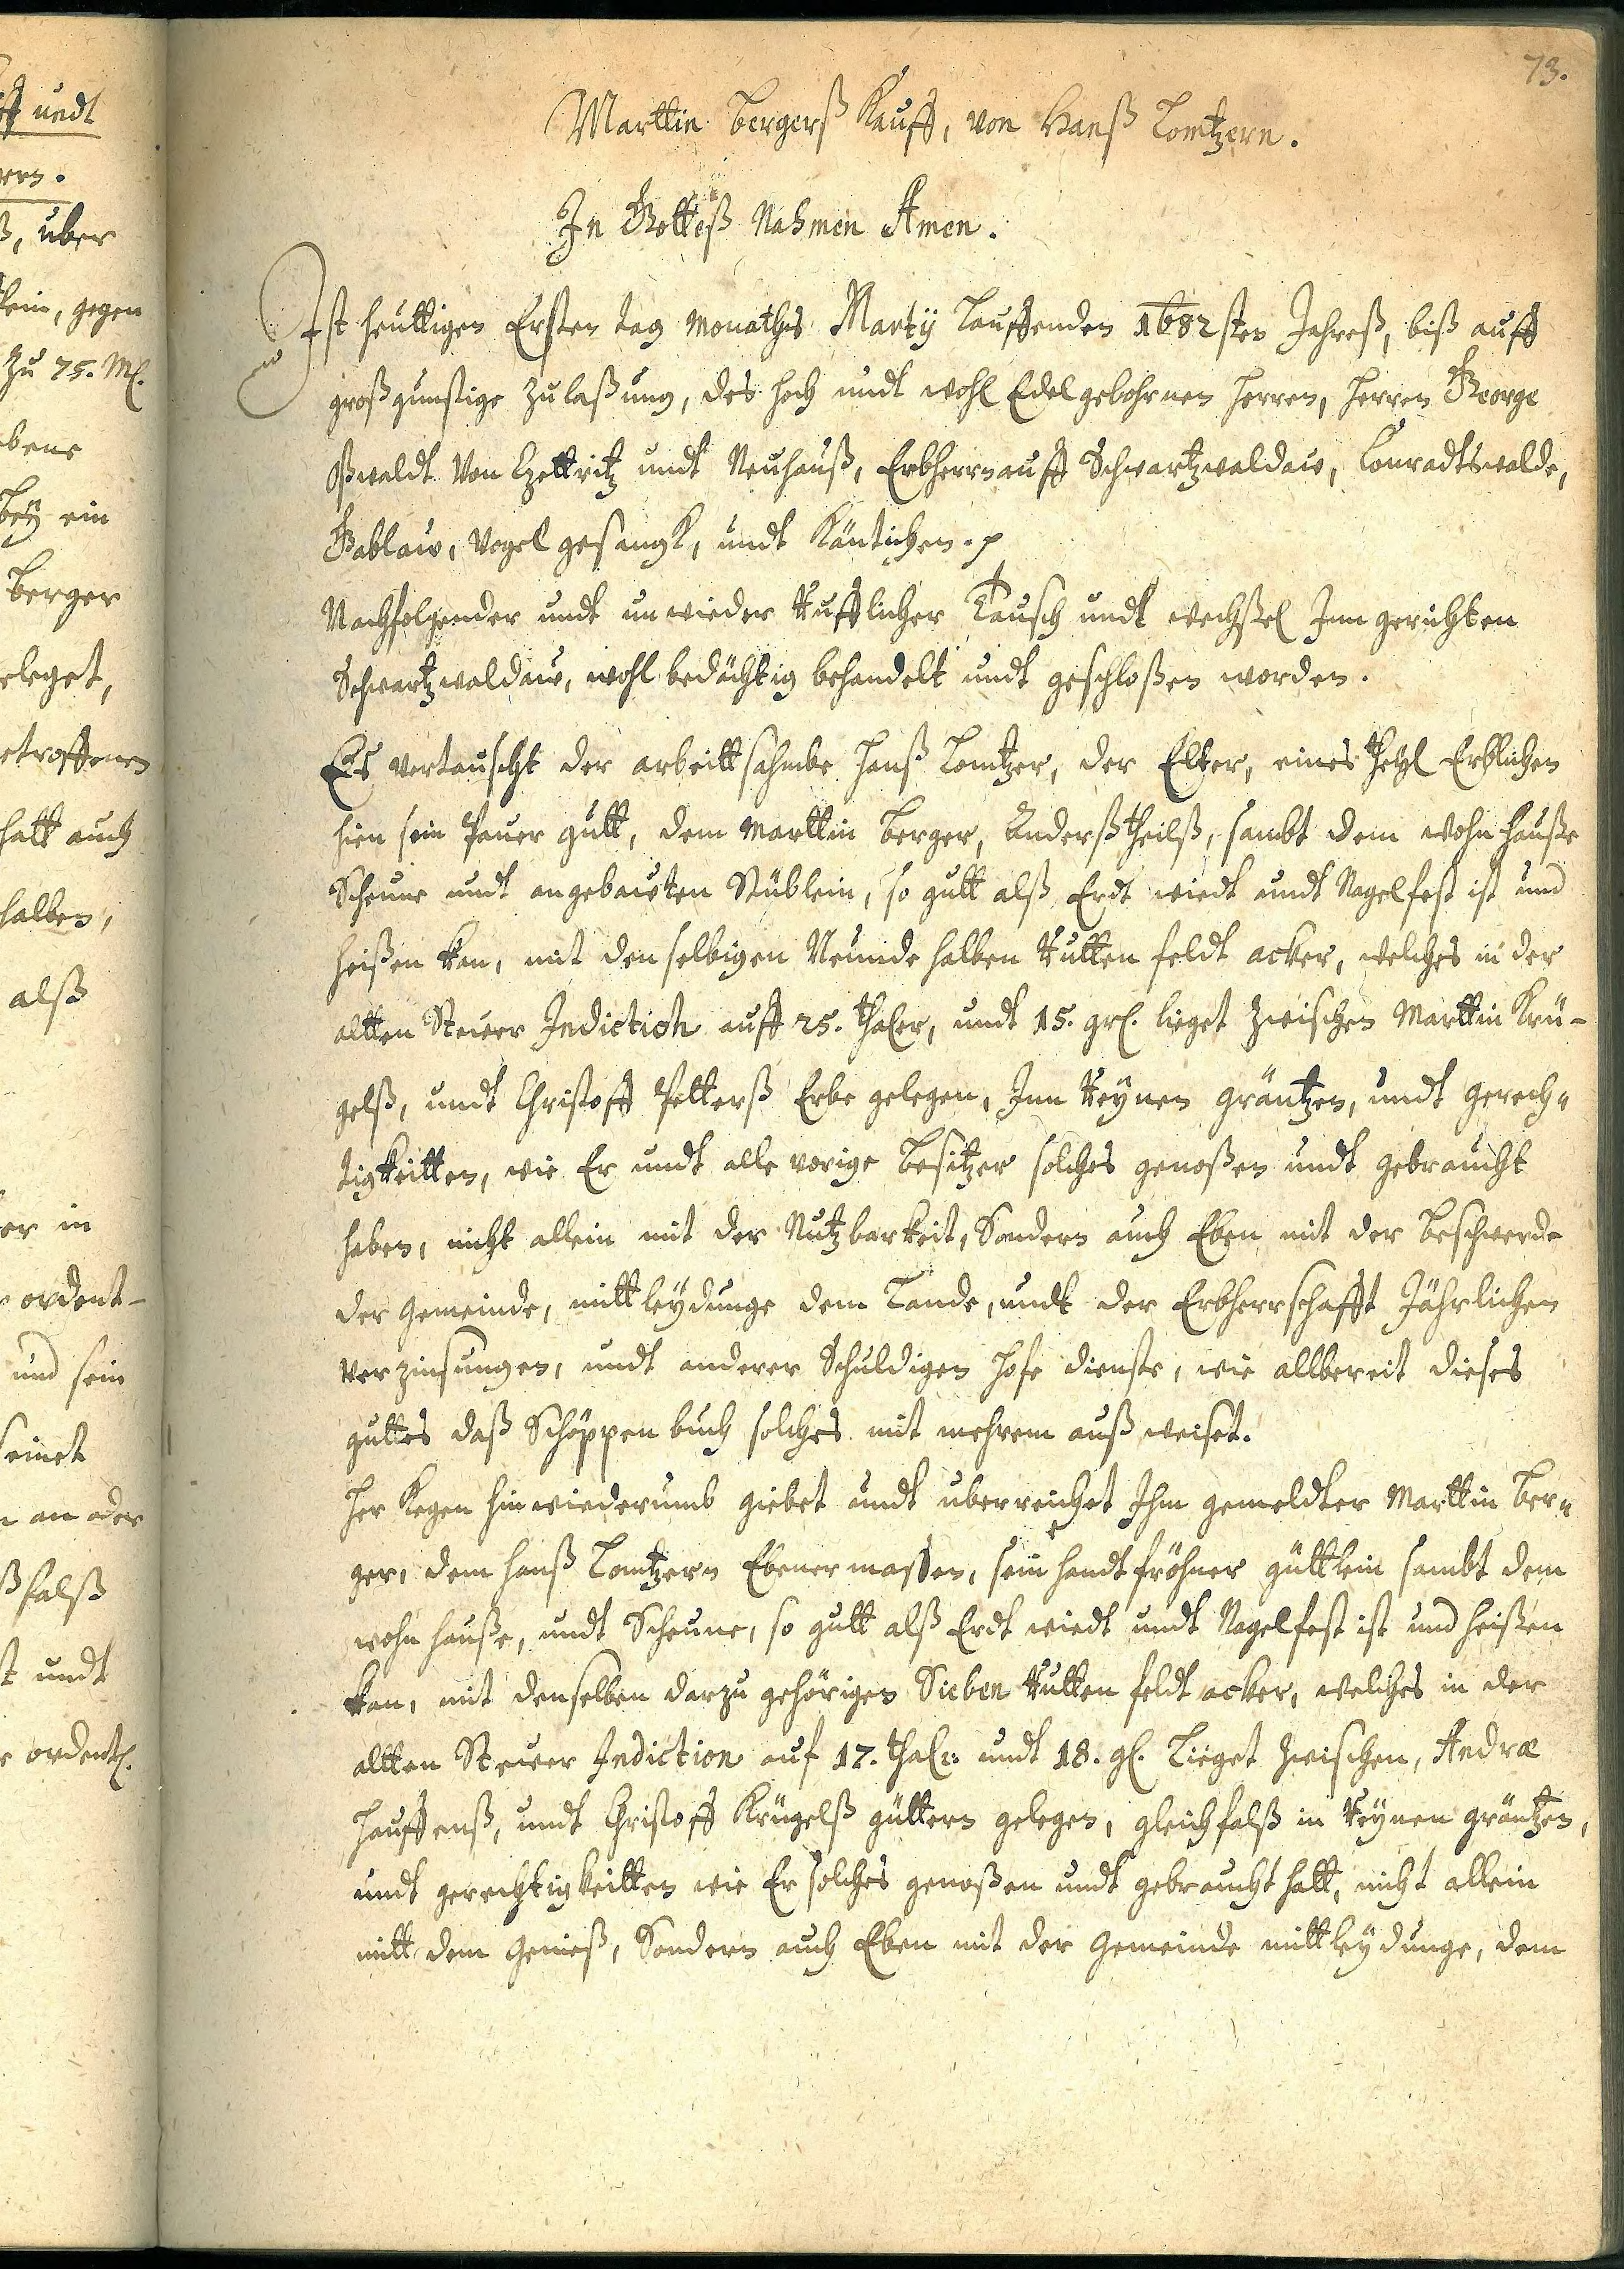 73.
Marttin Bergerß Kauff, von Hanß Lomtzern.
In Gotteß Nahmen Amen.
Ist heuttigen Ersten tag Monathes Martij Lauffenden 1682sten Jahreß, biß auff
großgunstige zulaßung, des hoch undt wohl Edelgebohrnen Herren, Herren George
Oßwaldt Von Czettritz undt Neuhauß, Erbherrn auff Schwartzwaldaw, Conradtswalde,
Gablaw, Vogelgesangk, undt Käntichen. p
Nachfolgender undt unwieder Rufflicher Tausch undt wechßel Inn gerichten
Schwartzwaldaw, wohl bedächtig behandelt undt geschloßen worden.
Es vertauscht der arbeittsahmbe Hanß Lomtzer, der Elter, eines theyl Erblichen
hien sein Pauer gutt, dem Marttin Berger, Anderßtheilß, sambt dem wohnhauße
Scheune undt angebauten Stüblein, so gutt alß Erdt wiedt undt Nagelfest ist und
heißen kan, mit denselbigen Neunde halben Rutten feldt acker, welches in der
altten Steuer Indiction auff 25. thaler, undt 15. grl. lieget zwischen Marttin Krü-
gelß, undt Christoff Petterß Erbe gelegen, Inn Reynen gräntzen, undt gerech-
tigkeitten, wie Er undt alle vorige besitzer solches genoßen undt gebraucht
haben, nicht allein mit der Nutzbarkeit, Sondern auch Eben mit der beschwerde
der Gemeinde, mittleydunge dem Lande, undt der Erbherrschafft Jährlichen
verzinsungen, undt anderer Schuldigen hofe dienste, wie allbereit dieses
guttes daß Schöppen buch solches mit mehrem außweiset.
Her Kegen hinwiederumb giebet undt uberreichet Ihm gemeldter Marttin Ber-
ger, dem Hanß Lomtzern Ebener massen, sein handtfröhner güttlein sambt dem
wohn hauße, undt Scheune, so gutt alß Erdt wiedt undt Nagelfest ist und heißen
kan, mit denselben darzu gehörigen Sieben Rutten feldt acker, welches in der
altten Steuer Indiction auf 17. thalr. undt 18. gl. Lieget zwischen, Andræ
Hauffenß, undt Christoff Krügelß güttern gelegen, gleichfalß in Reynen gräntzen,
undt gerechtigkeitten wie Er solches genoßen undt gebraucht hatt, nicht allein
mitt dem Genieß, Sondern auch Eben mit der Gemeinde mittleydunge, dem
undt
uber
gegen
zu 75. M.
bey ein
Berger
hatt auch
halben,
alß
er in
ordent-
und sein
an oder
undt
ordentl.